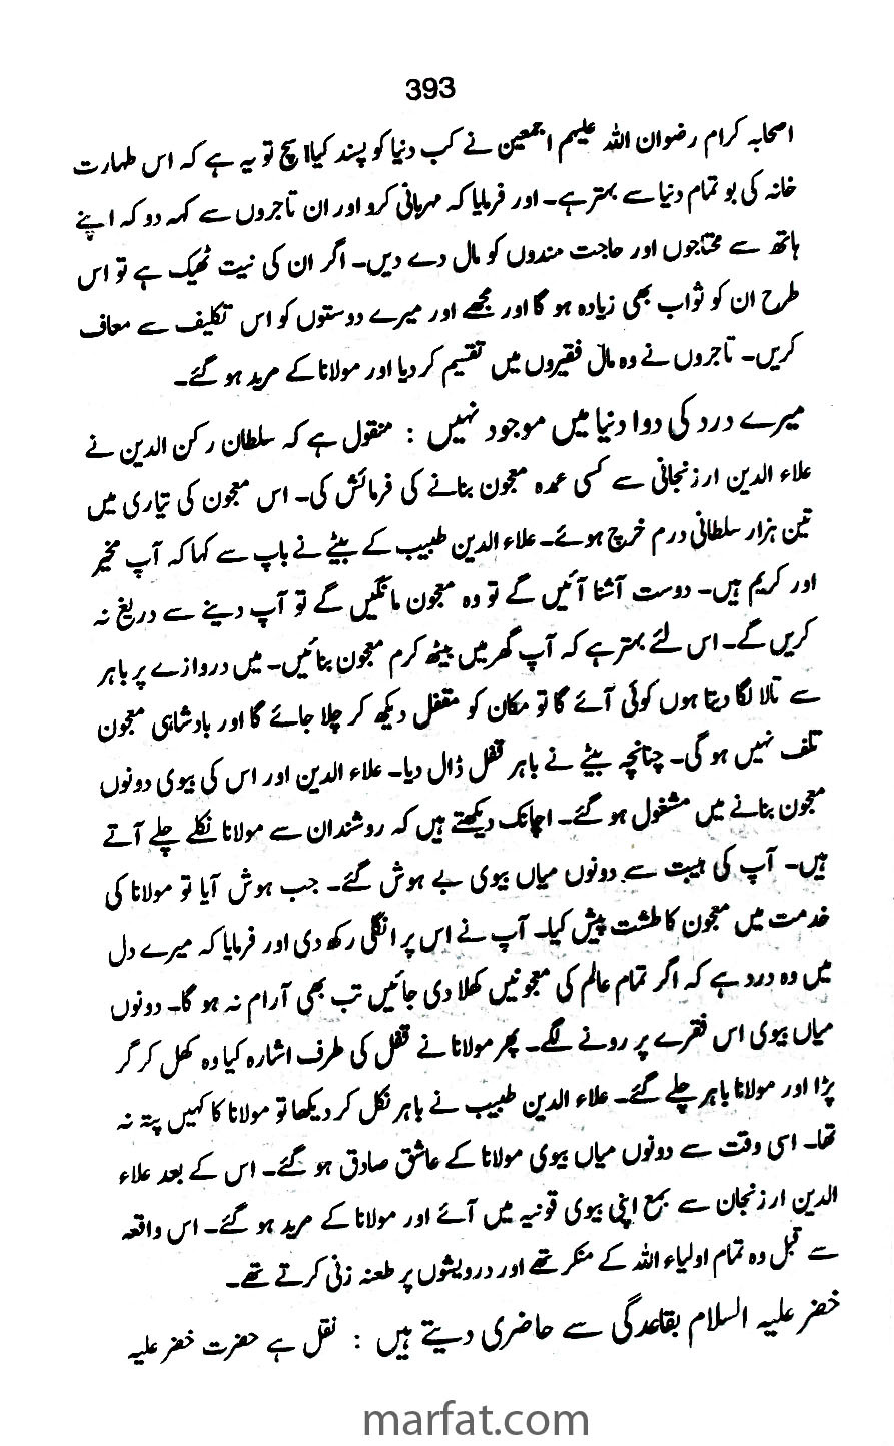 393
اصحابہ کرام رضوان اللہ علیہم اجمعین نے کب دنیا کو پسند کیا! سچ تو یہ ہے کہ اس طہارت
خانہ کی بو تمام دنیا سے بہتر ہے۔ اور فرمایا کہ مہربانی کرو اور ان تاجروں سے کہہ دو کہ اپنے
ہاتھ سے محتاجوں اور حاجت مندوں کو مال دے دیں۔ اگر ان کی نیت ٹھیک ہے تو اس
طرح ان کو ثواب بھی زیادہ ہو گا اور مجھے اور میرے دوستوں کو اس تکلیف سے معاف
کریں۔ تاجروں نے وہ مال فقیروں میں تقسیم کر دیا اور مولانا کے مرید ہو گئے۔
میرے درد کی دوا دنیا میں موجود نہیں : منقول ہے کہ سلطان رکن الدین نے
علاء الدین ارزنجانی سے کسی عمدہ معجون بنانے کی فرمائش کی۔ اس معجون کی تیاری میں
تین ہزار سلطانی درم خرچ ہوئے۔ علاء الدین طبیب کے بیٹے نے باپ سے کہا کہ آپ مخیر
اور کریم ہیں۔ دوست آشنا آئیں گے تو وہ معجون مانگیں گے تو آپ دینے سے دریغ نہ
کریں گے۔ اس لئے بہتر ہے کہ آپ گھر میں بیٹھ کرم معجون بنائیں۔ میں دروازے پر باہر
سے تالا لگا دیتا ہوں کوئی آئے گا تو مکان کو مقفل دیکھ کر چلا جائے گا اور بادشاہی معجون
تلف نہیں ہو گی۔ چنانچہ بیٹے نے باہر قفل ڈال دیا۔ علاء الدین اور اس کی بیوی دونوں
معجون بنانے میں مشغول ہو گئے۔ اچانک دیکھتے ہیں کہ روشندان سے مولانا نکلے چلے آتے
ہیں۔ آپ کی ہیبت سے دونوں میاں بیوی بے ہوش گئے۔ جب ہوش آیا تو مولانا کی
خدمت میں معجون کا طشت پیش کیا۔ آپ نے اس پر انگلی رکھ دی اور فرمایا کہ میرے دل
میں وہ درد ہے کہ اگر تمام عالم کی معجونیں کھلا دی جائیں تب بھی آرام نہ ہو گا۔ دونوں
میاں بیوی اس فقرے پر رونے لگے۔ پھر مولانا نے قفل کی طرف اشارہ کیا وہ کھل کر گر
پڑا اور مولانا باہر چلے گئے۔ علاء الدین طبیب نے باہر نکل کر دیکھا تو مولانا کا کہیں پتہ نہ
تھا۔ اسی وقت سے دونوں میاں بیوی مولانا کے عاشق صادق ہو گئے۔ اس کے بعد علاء
الدین ارزنجان سے بمع اپنی بیوی قونیہ میں آئے اور مولانا کے مرید ہو گئے۔ اس واقعہ
سے قبل وہ تمام اولیاء اللہ کے منکر تھے اور درویشوں پر طعنہ زنی کرتے تھے۔
خضر علیہ السلام بقاعدگی سے حاضری دیتے ہیں : نقل ہے حضرت خضر علیہ
marfat.com